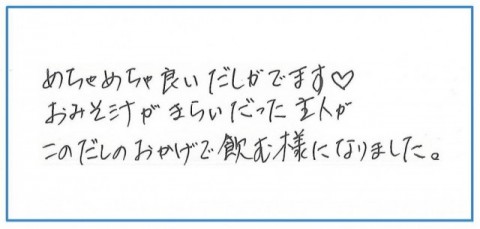 めちゃめちゃ良いだしがでます♡
おみそ汁がきらいだった主人が
このだしのおかげで飲む様になりました。